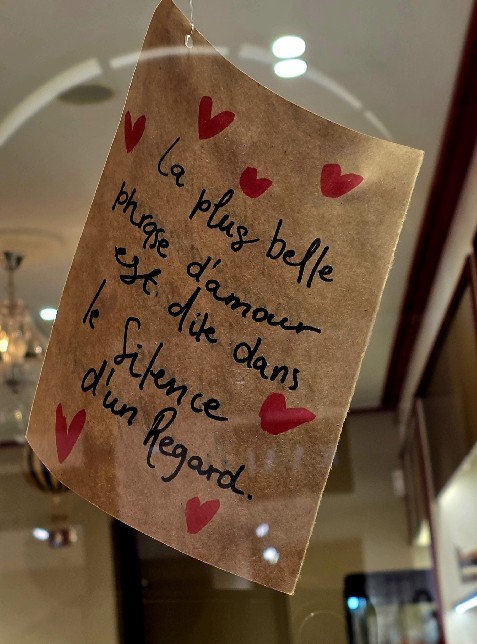 la plus belle
phrase d'amour
est dite dans
le Silence
d'un Regard.